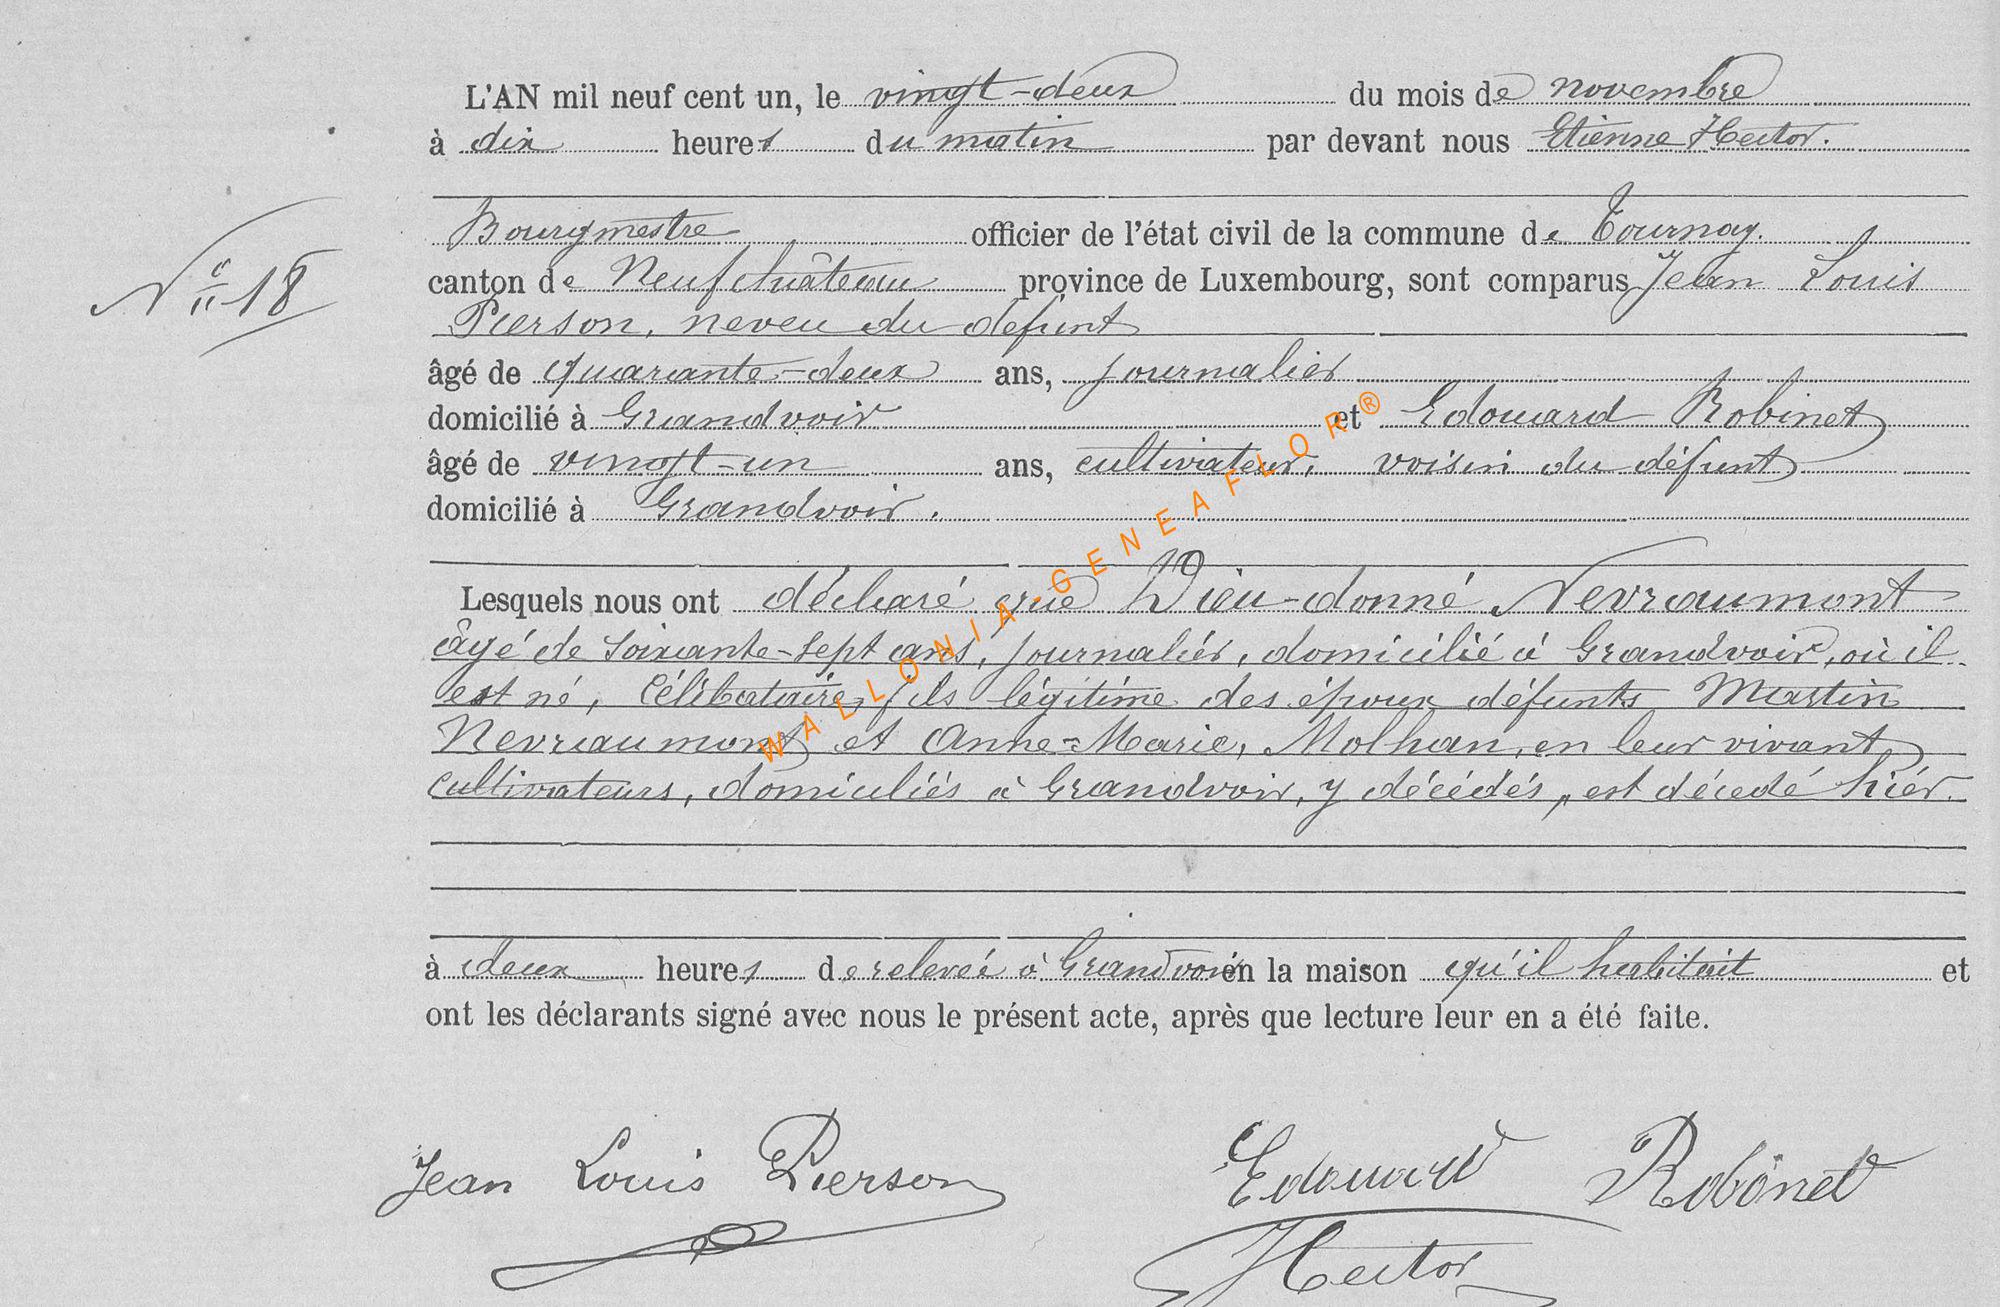 L'AN mil neuf cent un, le vingt-deux du mois de novembre
à dix heures du matin par devant nous Etienne Hector.
Bourgmestre officier de l'état civil de la commune de Tournay.
N° 18
canton de Neufchâteau province de Luxembourg, sont comparus Jean Louis
Pierson, neveu du défunt
âgé de quarante-deux ans, journalier
domicilié à Grandvoir et Edouard Robinet
âgé de vingt-un ans, cultivateur, voisin du défunt
domicilié à Grandvoir.
Lesquels nous ont déclaré que Dieu-donné Nevraumont
âgé de soixante-sept ans, journalier, domicilié à Grandvoir, où il
est né, célibataire, fils légitime des époux défunts Martin
Nevraumont et Anne-Marie, Molhan, en leur vivant
cultivateurs, domiciliés à Grandvoir, y décédés, est décedé hiér.
à deux heures de relevée à Grandvoir en la maison qu'il habitait et
ont les déclarants signé avec nous le présent acte, après que lecture leur en a été faite.
Jean Louis Pierson Edouard Robinet
Hector
WALLONIA-GENEAFLOR®